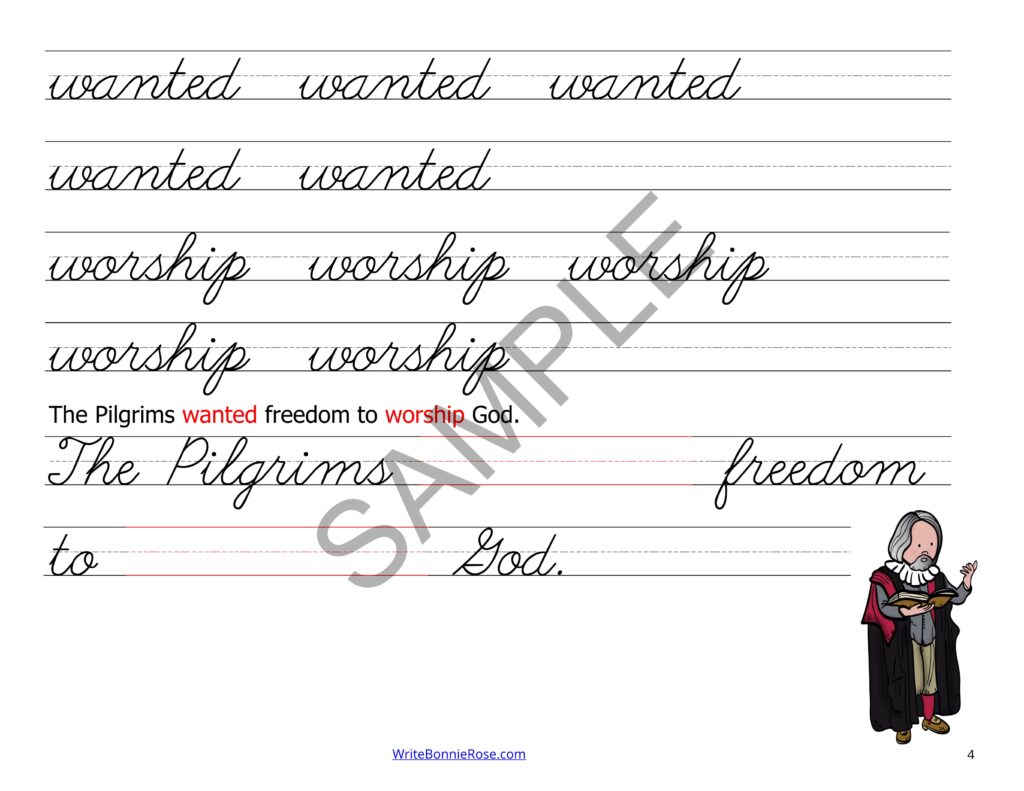 wanted wanted wanted
wanted wanted
worship worship worship
worship worship
The Pilgrims wanted freedom to worship God.
The Pilgrims freedom
to God.
SAMPLE
WriteBonnieRose.com 4